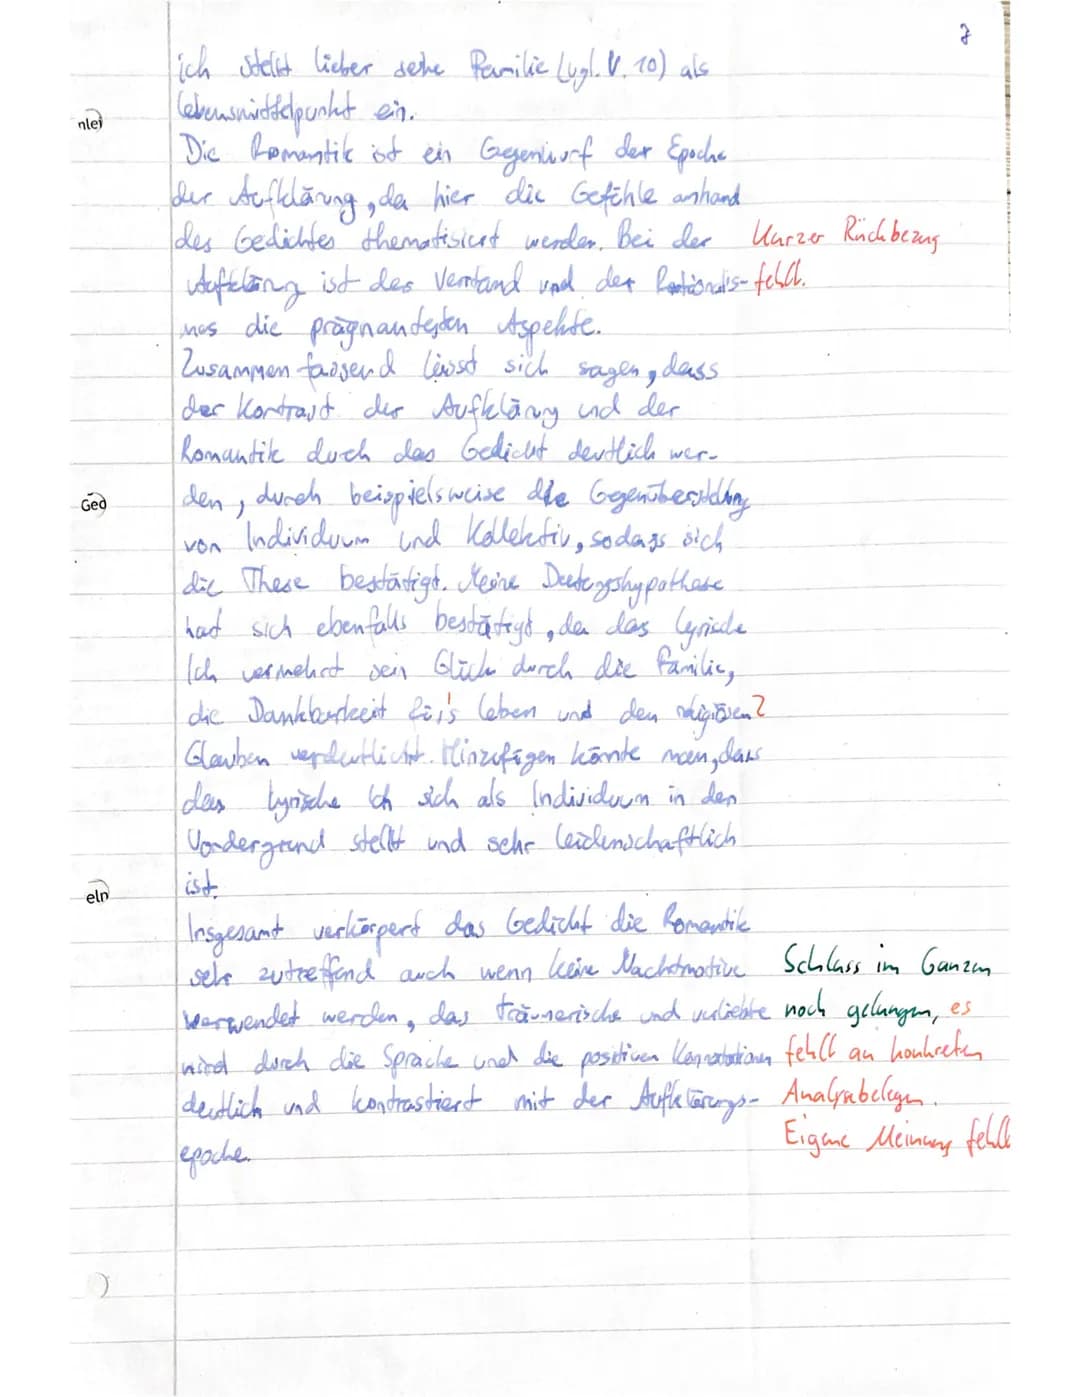 7
ich stellt lieber seine Familie (vgl. V. 10) als
Lebensmittelpunkt ein.
nlei
Die Romantik ist ein Gegenwurf der Epoche
der Aufklärung, da hier die Gefühle anhand
des Gedichtes thematisiert werden. Bei der
Kurzer Rückbezug
Aufklärung ist der Verstand und der Rationalis-
fehlt.
mus die prägnantesten Aspekte.
Zusammenfassend lässt sich sagen, dass
der Kontrast der Aufklärung und der
Romantik durch das Gedicht deutlich wer-
Ged
den, durch beispielsweise die Gegenüberstellung
von Individuum und Kollektiv, sodass sich
die These bestätigt. Meine Deutungshypothese
hat sich ebenfalls bestätigt, da das lyrische
Ich vermehrt sein Glück durch die Familie,
die Dankbarkeit für's Leben und den religiösen ?
Glauben verdeutlicht. Hinzufügen könnte man, dass
das lyrische Ich sich als Individuum in den
Vordergrund stellt und sehr leidenschaftlich
eln
ist.
Insgesamt verkörpert das Gedicht die Romantik
sehr zutreffend auch wenn keine Nachtmotive
Schluss im Ganzen
verwendet werden, das träumerische und verliebte
noch gelungen, es
wird durch die Sprache und die positiven Konnotationen
fehlt an konkreten
deutlich und kontrastiert mit der Aufklärungs-
Analysebelegen.
Eigene Meinung fehlt
epoche.